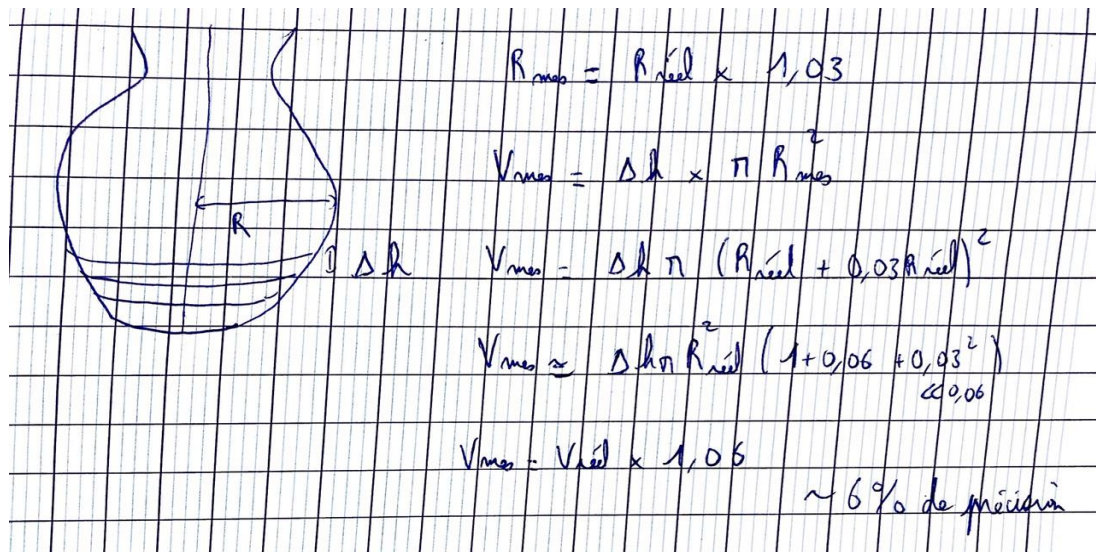 R mes = R réel × 1,03
V mes = Δh × π R mes²
R
Δh
V mes = Δh π (R réel + 0,03 R réel)²
V mes ≃ Δh π R réel² (1 + 0,06 + 0,03²)
≪ 0,06
V mes = V réel × 1,06
~ 6% de précision